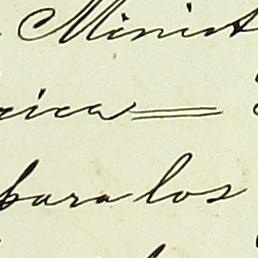 Minist
rica=
para los